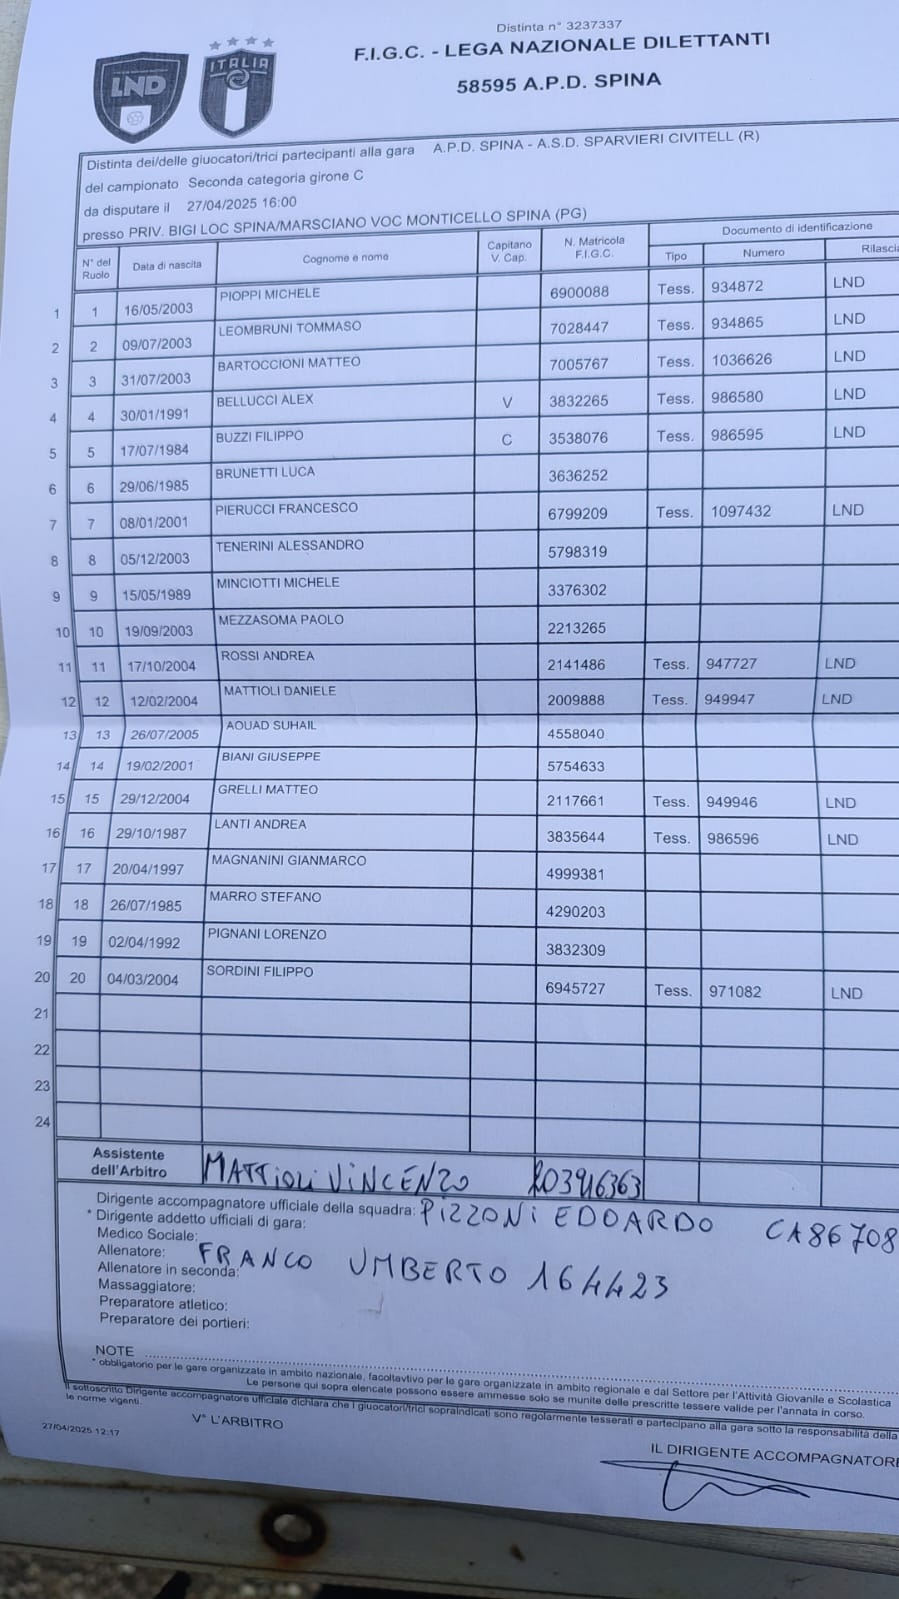 Distinta n° 3237337
F.I.G.C. - LEGA NAZIONALE DILETTANTI
58595 A.P.D. SPINA
LND
ITALIA
Distinta dei/delle giuocatori/trici partecipanti alla gara A.P.D. SPINA - A.S.D. SPARVIERI CIVITELL (R)
del campionato Seconda categoria girone C
da disputare il 27/04/2025 16:00
presso PRIV. BIGI LOC SPINA/MARSCIANO VOC MONTICELLO SPINA (PG)
N° del Ruolo Data di nascita Cognome e nome Capitano V. Cap. N. Matricola F.I.G.C. Documento di identificazione
Tipo Numero Rilascia
1 1 16/05/2003 PIOPPI MICHELE 6900088 Tess. 934872 LND
2 2 09/07/2003 LEOMBRUNI TOMMASO 7028447 Tess. 934865 LND
3 3 31/07/2003 BARTOCCIONI MATTEO 7005767 Tess. 1036626 LND
4 4 30/01/1991 BELLUCCI ALEX V 3832265 Tess. 986580 LND
5 5 17/07/1984 BUZZI FILIPPO C 3538076 Tess. 986595 LND
6 6 29/06/1985 BRUNETTI LUCA 3636252
7 7 08/01/2001 PIERUCCI FRANCESCO 6799209 Tess. 1097432 LND
8 8 05/12/2003 TENERINI ALESSANDRO 5798319
9 9 15/05/1989 MINCIOTTI MICHELE 3376302
10 10 19/09/2003 MEZZASOMA PAOLO 2213265
11 11 17/10/2004 ROSSI ANDREA 2141486 Tess. 947727 LND
12 12 12/02/2004 MATTIOLI DANIELE 2009888 Tess. 949947 LND
13 13 26/07/2005 AOUAD SUHAIL 4558040
14 14 19/02/2001 BIANI GIUSEPPE 5754633
15 15 29/12/2004 GRELLI MATTEO 2117661 Tess. 949946 LND
16 16 29/10/1987 LANTI ANDREA 3835644 Tess. 986596 LND
17 17 20/04/1997 MAGNANINI GIANMARCO 4999381
18 18 26/07/1985 MARRO STEFANO 4290203
19 19 02/04/1992 PIGNANI LORENZO 3832309
20 20 04/03/2004 SORDINI FILIPPO 6945727 Tess. 971082 LND
21
22
23
24
Assistente dell'Arbitro MATTIOLI VINCENZO
Dirigente accompagnatore ufficiale della squadra: PIZZONI EDOARDO CA86708
* Dirigente addetto ufficiali di gara:
Medico Sociale:
Allenatore: FRANCO UMBERTO 164423
Allenatore in seconda:
Massaggiatore:
Preparatore atletico:
Preparatore dei portieri:
NOTE
* obbligatorio per le gare organizzate in ambito nazionale, facoltavtivo per le gare organizzate in ambito regionale e dal Settore per l'Attività Giovanile e Scolastica
Le persone qui sopra elencate possono essere ammesse solo se munite delle prescritte tessere valide per l'annata in corso.
Il sottoscritto Dirigente accompagnatore ufficiale dichiara che I giuocatori/trici sopraindicati sono regolarmente tesserati e partecipano alla gara sotto la responsabilità della
le norme vigenti.
27/04/2025 12:17
V° L'ARBITRO
IL DIRIGENTE ACCOMPAGNATORE